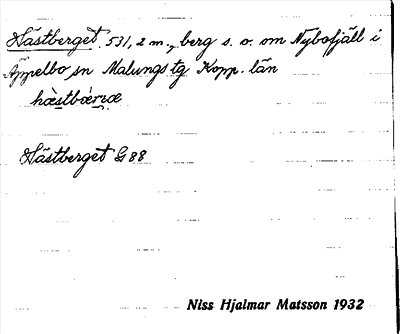 Hästberget 531,2 m., berg s. o. om Nybofjäll i
Äppelbo sn Malungs tg Kopp. län
hæ̀stbær̀jæ
Hästberget G 88
Niss Hjalmar Matsson 1932